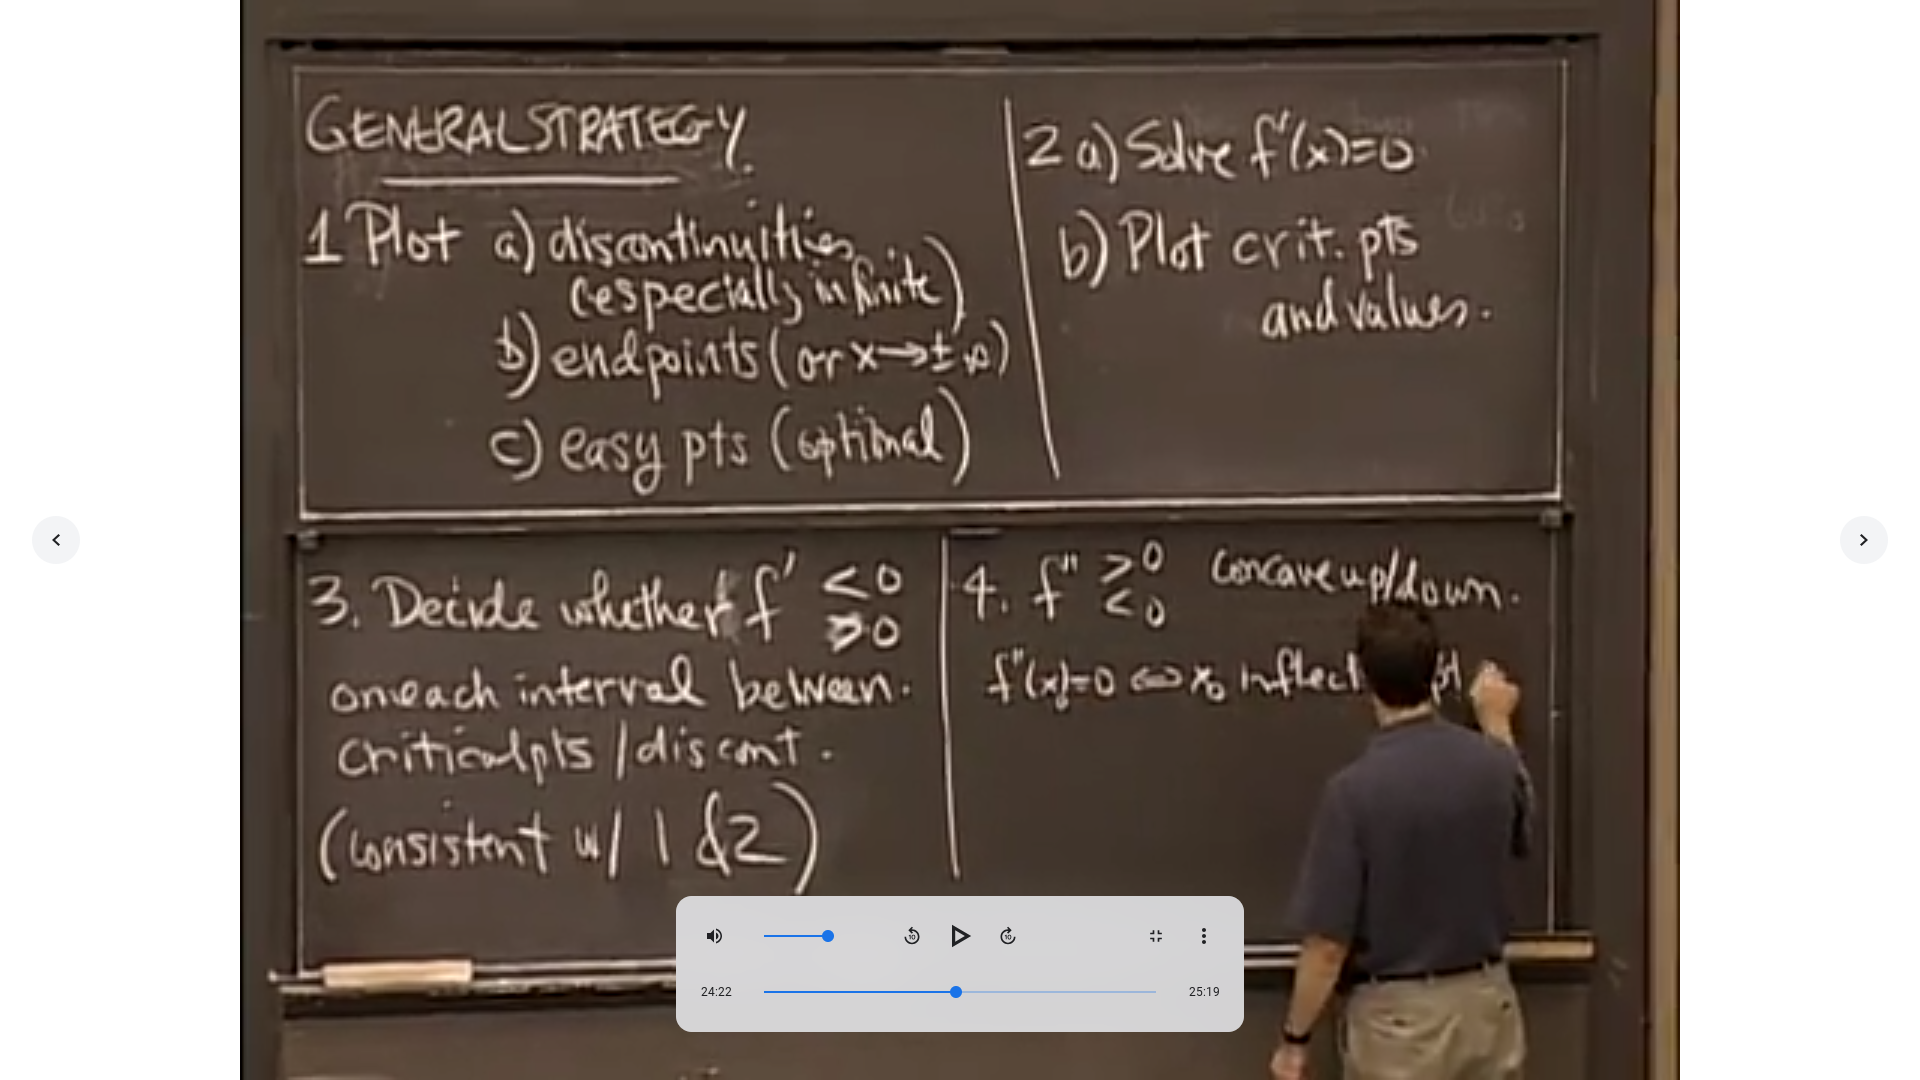 GENERAL STRATEGY
1 Plot a) discontinuities
(especially infinite)
b) endpoints (or x→±∞)
c) easy pts (optional)
2 a) Solve f'(x)=0
b) Plot crit. pts
and values.
3. Decide whether f' <0
>0
on each interval between
critical pts / discont.
(consistent w/ 1 & 2)
4. f" >0 concave up/down.
<0
f"(x₀)=0 ⇔ x₀ inflect pt
10
10
24:22
25:19